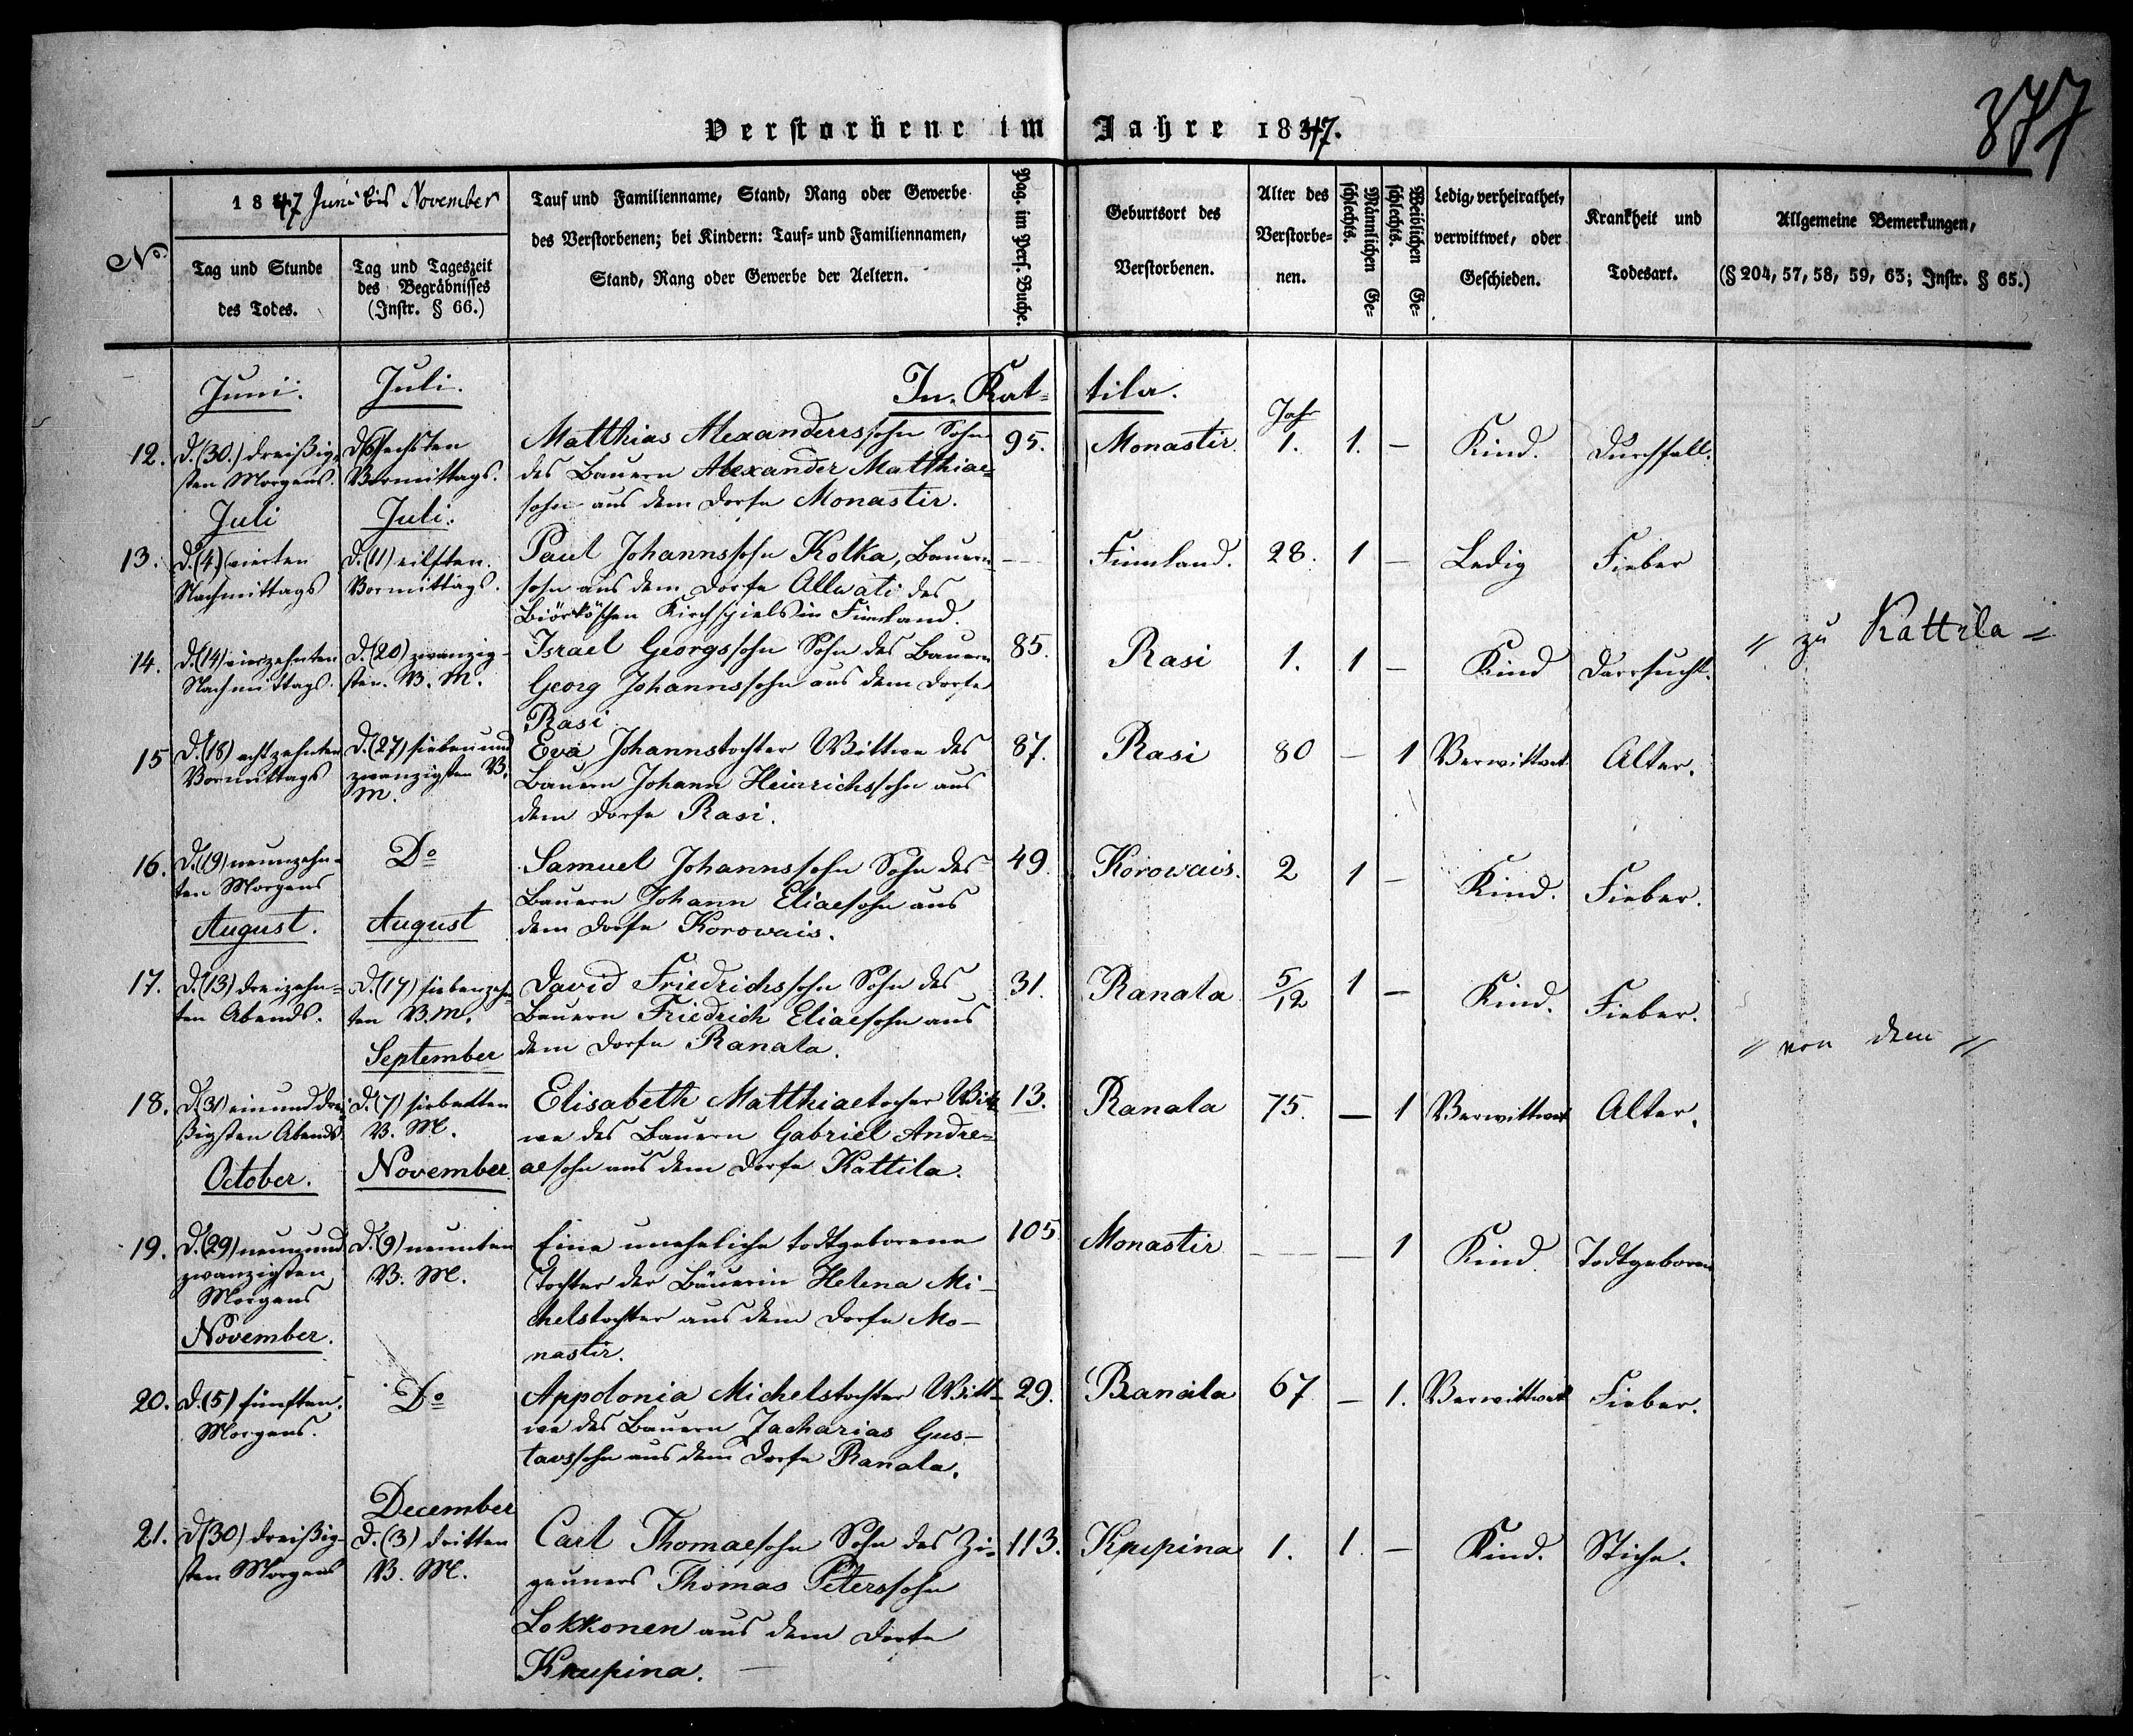 877
Verstorbene im Jahre 1847.
No.
1847 Juni bis November
Tag und Stunde
des Todes.
Tag und Tageszeit
des Begräbnisses
(Instr. § 66.)
Tauf und Familienname, Stand, Rang oder Gewerbe
des Verstorbenen; bei Kindern: Tauf- und Familiennamen,
Stand, Rang oder Gewerbe der Aeltern.
Pag. im Pers. Buche.
Geburtsort des
Verstorbenen.
Alter des
Verstorbe-
nen.
Männlichen Ge-
schlechts.
Weiblichen Ge-
schlechts.
Ledig, verheirathet,
verwittwet, oder
Geschieden.
Krankheit und
Todesart.
Allgemeine Bemerkungen,
(§ 204, 57, 58, 59, 63; Instr. § 65.)
In Kat- tila.
Juni.
Juli.
12.
D. (30.) dreißig-
sten Morgens.
D. (6) sechsten
Vormittags.
Matthias Alexanderssohn Sohn
des Bauern Alexander Matthiae-
sohn aus dem Dorfe Monastir.
95.
Monastir.
Jahr
1.
1.
—
Kind.
Durchfall.
Juli
Juli.
13.
D. (4) vierten
Nachmittags
D. (11) eilften.
Vormittags.
Paul Johannssohn Kolka, Bauern-
sohn aus dem Dorfe Allwati des
Biörköschen Kirchspiels in Finnland.
—
Finnland.
28.
1
—
Ledig
Fieber
14.
D. (14) vierzehnten
Nachmittags.
D. (20) zwanzig-
sten. V. M.
Israel Georgssohn Sohn des Bauern
Georg Johannssohn aus dem Dorfe
Rasi
85.
Rasi
1.
1
—
Kind
Darrsucht.
" zu Kattila "
15
D. (18) achtzehnten
Vormittags
D. (27) sieben und
zwanzigsten V.
M.
Eva Johannstochter Wittwe des
Bauern Johann Heinrichssohn aus
dem Dorfe Rasi.
87.
Rasi
80
—
1
Verwittwet
Alter.
16.
D. (19) neunzehn-
ten Morgens
Do
Samuel Johannssohn Sohn des
Bauern Johann Eliaesohn aus
dem Dorfe Korowais.
49.
Korowais.
2
1
—
Kind.
Fieber.
August.
August
17.
D. (13) dreizehn-
ten Abends.
D. (17) siebenzehn-
ten V. M.
David Friedrichssohn Sohn des
Bauern Friedrich Eliaesohn aus
dem Dorfe Ranala.
31.
Ranala
5/12
1
—
Kind.
Fieber.
" von dem "
September
18.
D. (31) ein und drei-
ßigsten Abends
D. (7) siebenten
V. M.
Elisabeth Matthiaetocher Witt-
we des Bauern Gabriel Andre-
aesohn aus dem Dorfe Kattila.
13.
Ranala
75.
—
1
Verwittwet
Alter.
October.
November.
19.
D. (29) neun und
zwanzigsten
Morgens
D. (9) neunten
V. M.
Eine uneheliche todtgeborene
Tochter der Bäuerin Helena Mi-
chelstochter aus dem Dorfe Mo-
nastir.
105
Monastir
—
—
1
Kind.
Todtgeboren
November.
20.
D. (5) fünften.
Morgens.
Do
Appolonia Michelstochter Witt-
we des Bauern Zacharias Gus-
tavssohn aus dem Dorfe Ranala.
29.
Ranala
67
—
1.
Verwittwet
Fieber.
December
21.
D. (30) dreißig-
sten Morgens
D. (3) dritten
V. M.
Carl Thomaesohn Sohn des Zi-
geuners Thomas Peterssohn
Lokkonen aus dem Dorfe
Krupina. —
113.
Krupina
1.
1.
—
Kind.
Stiche.